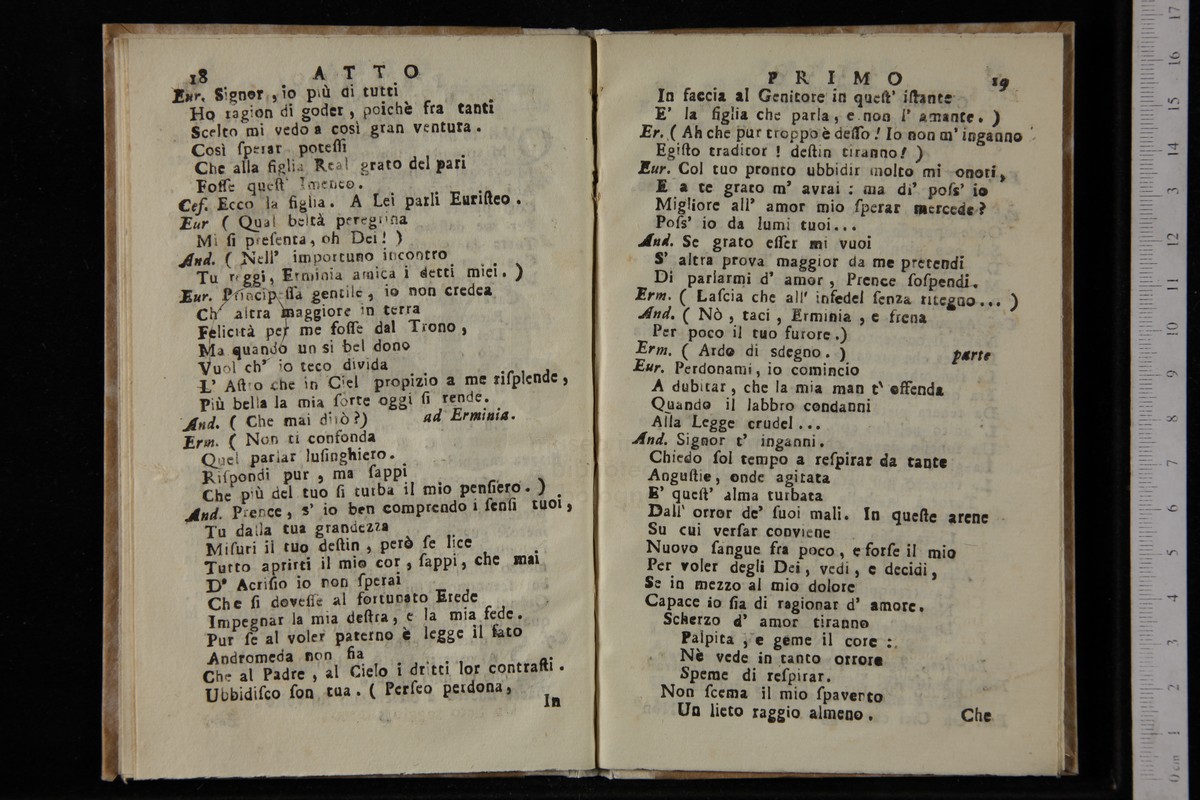 18 ATTO
Eur. Signor, io più di tutti
Ho ragion di goder, poichè fra tanti
Scelto mi vedo a così gran ventura.
Così ſperar poteſſi
Che alla figlia Real grato del pari
Foſſe queſt' Imeneo.
Cef. Ecco la figlia. A Lei parli Euriſteo.
Eur ( Qual beltà peregrina
Mi ſi preſenta, oh Dei! )
And. ( Nell' importuno incontro
Tu reggi, Erminia amica i detti miei. )
Eur. Principeſſa gentile, io non credea
Ch' altra maggiore in terra
Felicità per me foſſe dal Trono,
Ma quando un si bel dono
Vuol ch' io teco divida
L' Aſtro che in Ciel propizio a me riſplende,
Più bella la mia ſorte oggi ſi rende.
And. ( Che mai dirò?) ad Erminia.
Erm. ( Non ti confonda
Quel parlar luſinghiero.
Riſpondi pur, ma ſappi
Che più del tuo ſi turba il mio penſiero. )
And. Prence, s' io ben comprendo i ſenſi tuoi,
Tu dalla tua grandezza
Miſuri il tuo deſtin, però ſe lice
Tutto aprirti il mio cor, ſappi, che mai
D' Acriſio io non ſperai
Che ſi doveſſe al fortunato Erede
Impegnar la mia deſtra, e la mia fede.
Pur ſe al voler paterno è legge il fato
Andromeda non fia
Che al Padre, al Cielo i dritti lor contraſti.
Ubbidiſco ſon tua. ( Perſeo perdona,
In
PRIMO 19
In faccia al Genitore in queſt' iſtante
E' la figlia che parla, e non l' amante. )
Er. ( Ah che pur troppo è deſſo! Io non m' inganno
Egiſto traditor! deſtin tiranno! )
Eur. Col tuo pronto ubbidir molto mi onori,
E a te grato m' avrai : ma di' poſs' io
Migliore all' amor mio ſperar mercede?
Poſs' io da lumi tuoi...
And. Se grato eſſer mi vuoi
S' altra prova maggior da me pretendi
Di parlarmi d' amor, Prence ſoſpendi.
Erm. ( Laſcia che all' infedel ſenza ritegno... )
And. ( Nò, taci, Erminia, e frena
Per poco il tuo furore.)
Erm. ( Ardo di sdegno. ) parte
Eur. Perdonami, io comincio
A dubitar, che la mia man t' offenda
Quando il labbro condanni
Alla Legge crudel...
And. Signor t' inganni.
Chiedo ſol tempo a reſpirar da tante
Anguſtie, onde agitata
E' queſt' alma turbata
Dall' orror de' ſuoi mali. In queſte arene
Su cui verſar conviene
Nuovo ſangue fra poco, e forſe il mio
Per voler degli Dei, vedi, e decidi,
Se in mezzo al mio dolore
Capace io ſia di ragionar d' amore.
Scherzo d' amor tiranno
Palpita, e geme il core :
Nè vede in tanto orrore
Speme di reſpirar.
Non ſcema il mio ſpavento
Un lieto raggio almeno.
Che